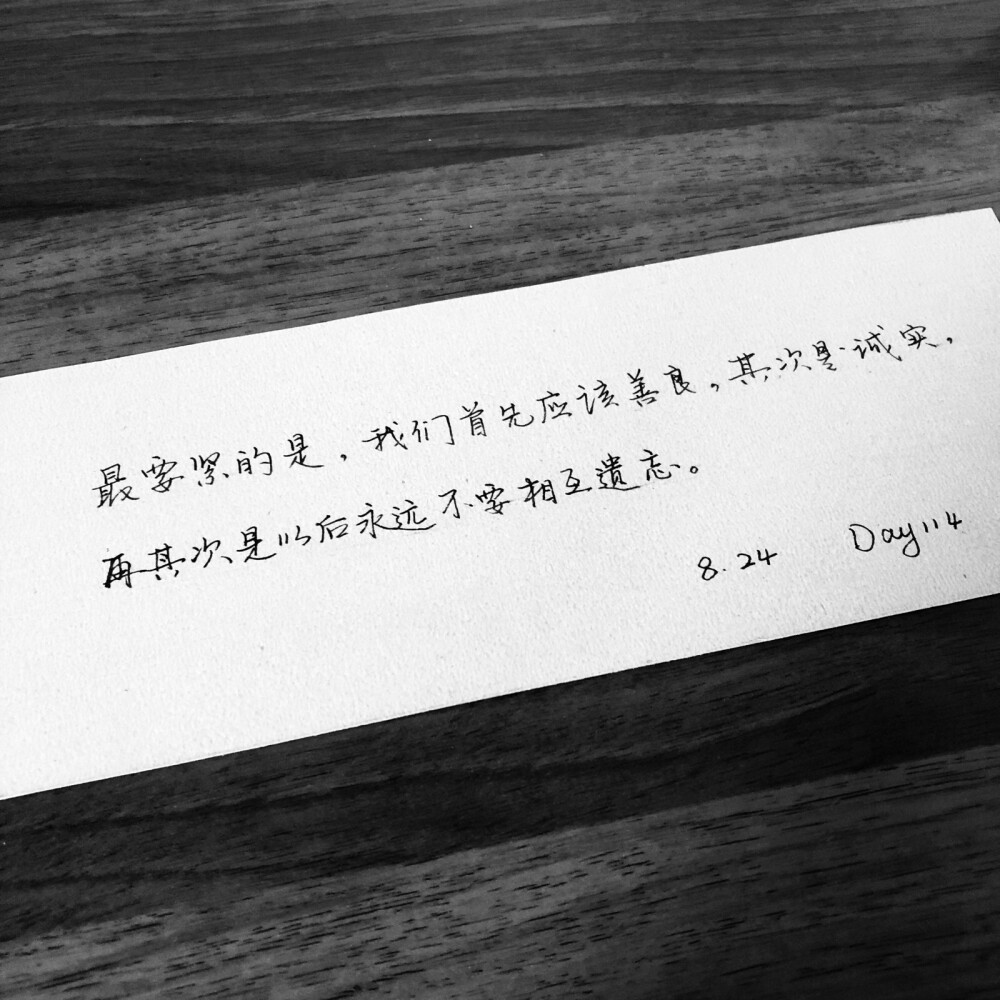 最要紧的是，我们首先应该善良，其次是诚实，
再其次是以后永远不要相互遗忘。
8.24 Day114